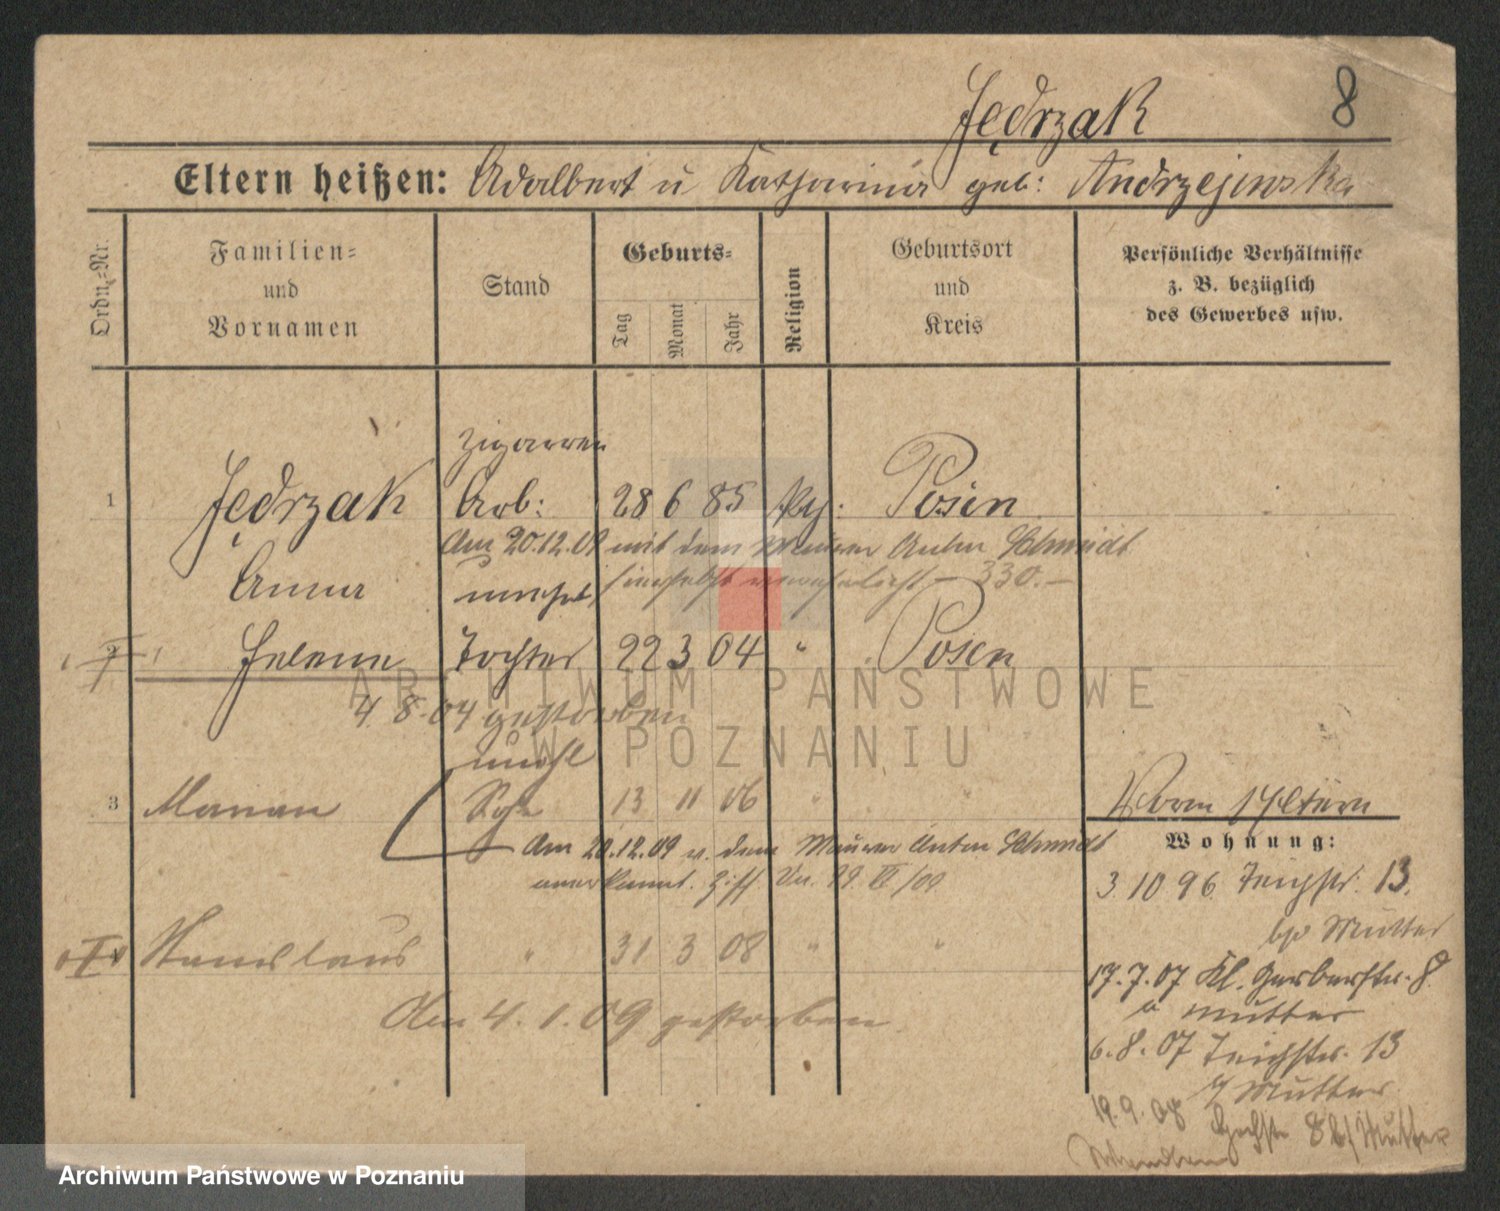 Jędrzak 8
Eltern heißen: Adalbert u Katharina geb: Andrzejewska
Ordn.-Nr.
Familien- und Vornamen
Stand
Geburts-
Tag Monat Jahr
Religion
Geburtsort und Kreis
Persönliche Verhältnisse z. B. bezüglich des Gewerbes usw.
Zigarren
1 Jędrzak Arb: 28 6 85 Posen
Am 20.12.09 mit dem Maurer Anton Schmidt
Anna unehel hierselbst verehelicht – 330. –
2 Helene Tochter 22 3 04 " Posen
4 8. 04 gestorben
unehl
3 Marian Sohn 13 11 06 " "
Am 20.12.09 v. dem Maurer Anton Schmidt
anerkannt.
Stanislaus " 31 3 08 " "
Am 4. 1. 09 gestorben.
Wohnung:
3 10 96 Teichstr. 13.
Mutter
17.7.07 Kl. Gerberstr. 8.
Mutter
6.8.07 Teichstr. 13
Mutter
19.9.08 8 b/Mutter
ARCHIWUM PAŃSTWOWE
W POZNANIU
Archiwum Państwowe w Poznaniu